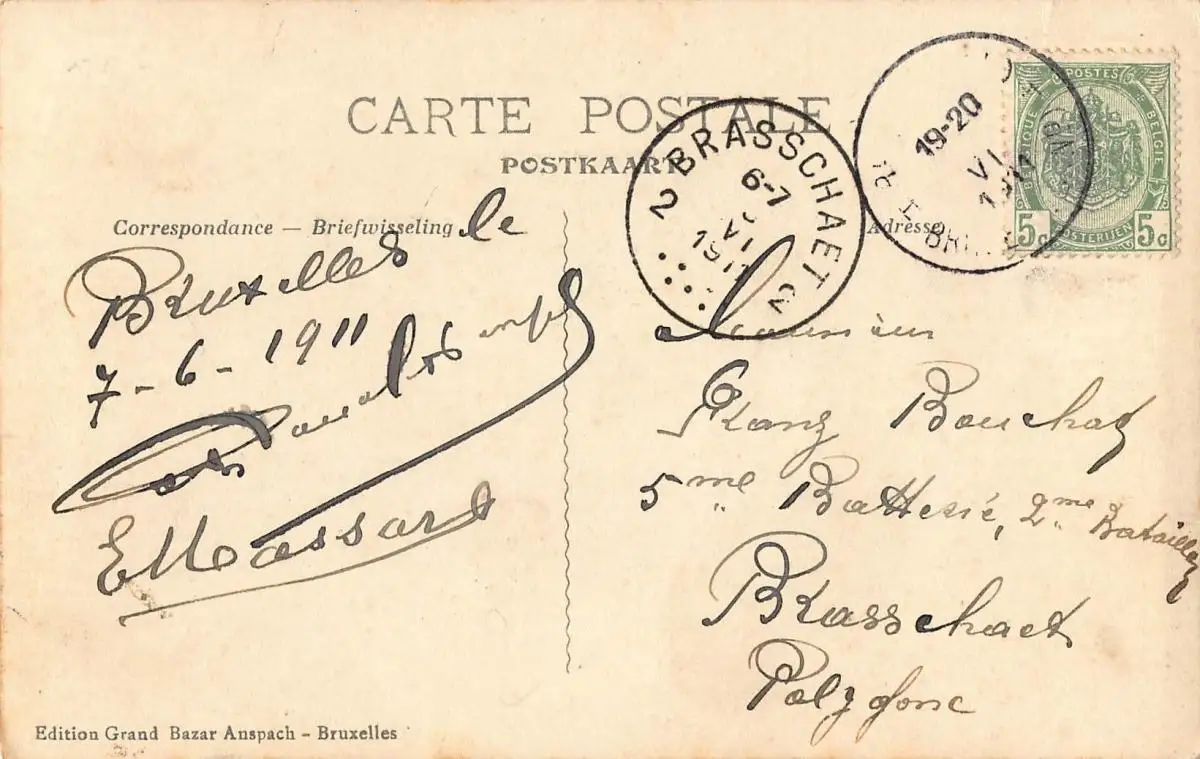 CARTE POSTALE
POSTKAART
Correspondance — Briefwisseling
Adresse
Bruxelles le
7-6-1911
E Massart
Monsieur
Franz Bouchat
5me Batterie, 2me
Brasschaet
Polygone
2 BRASSCHAET 2
6-7
VI
1911
19-20
VI
1911
POSTES
BELGIQUE BELGIE
POSTERIJEN
5c 5c
Edition Grand Bazar Anspach - Bruxelles